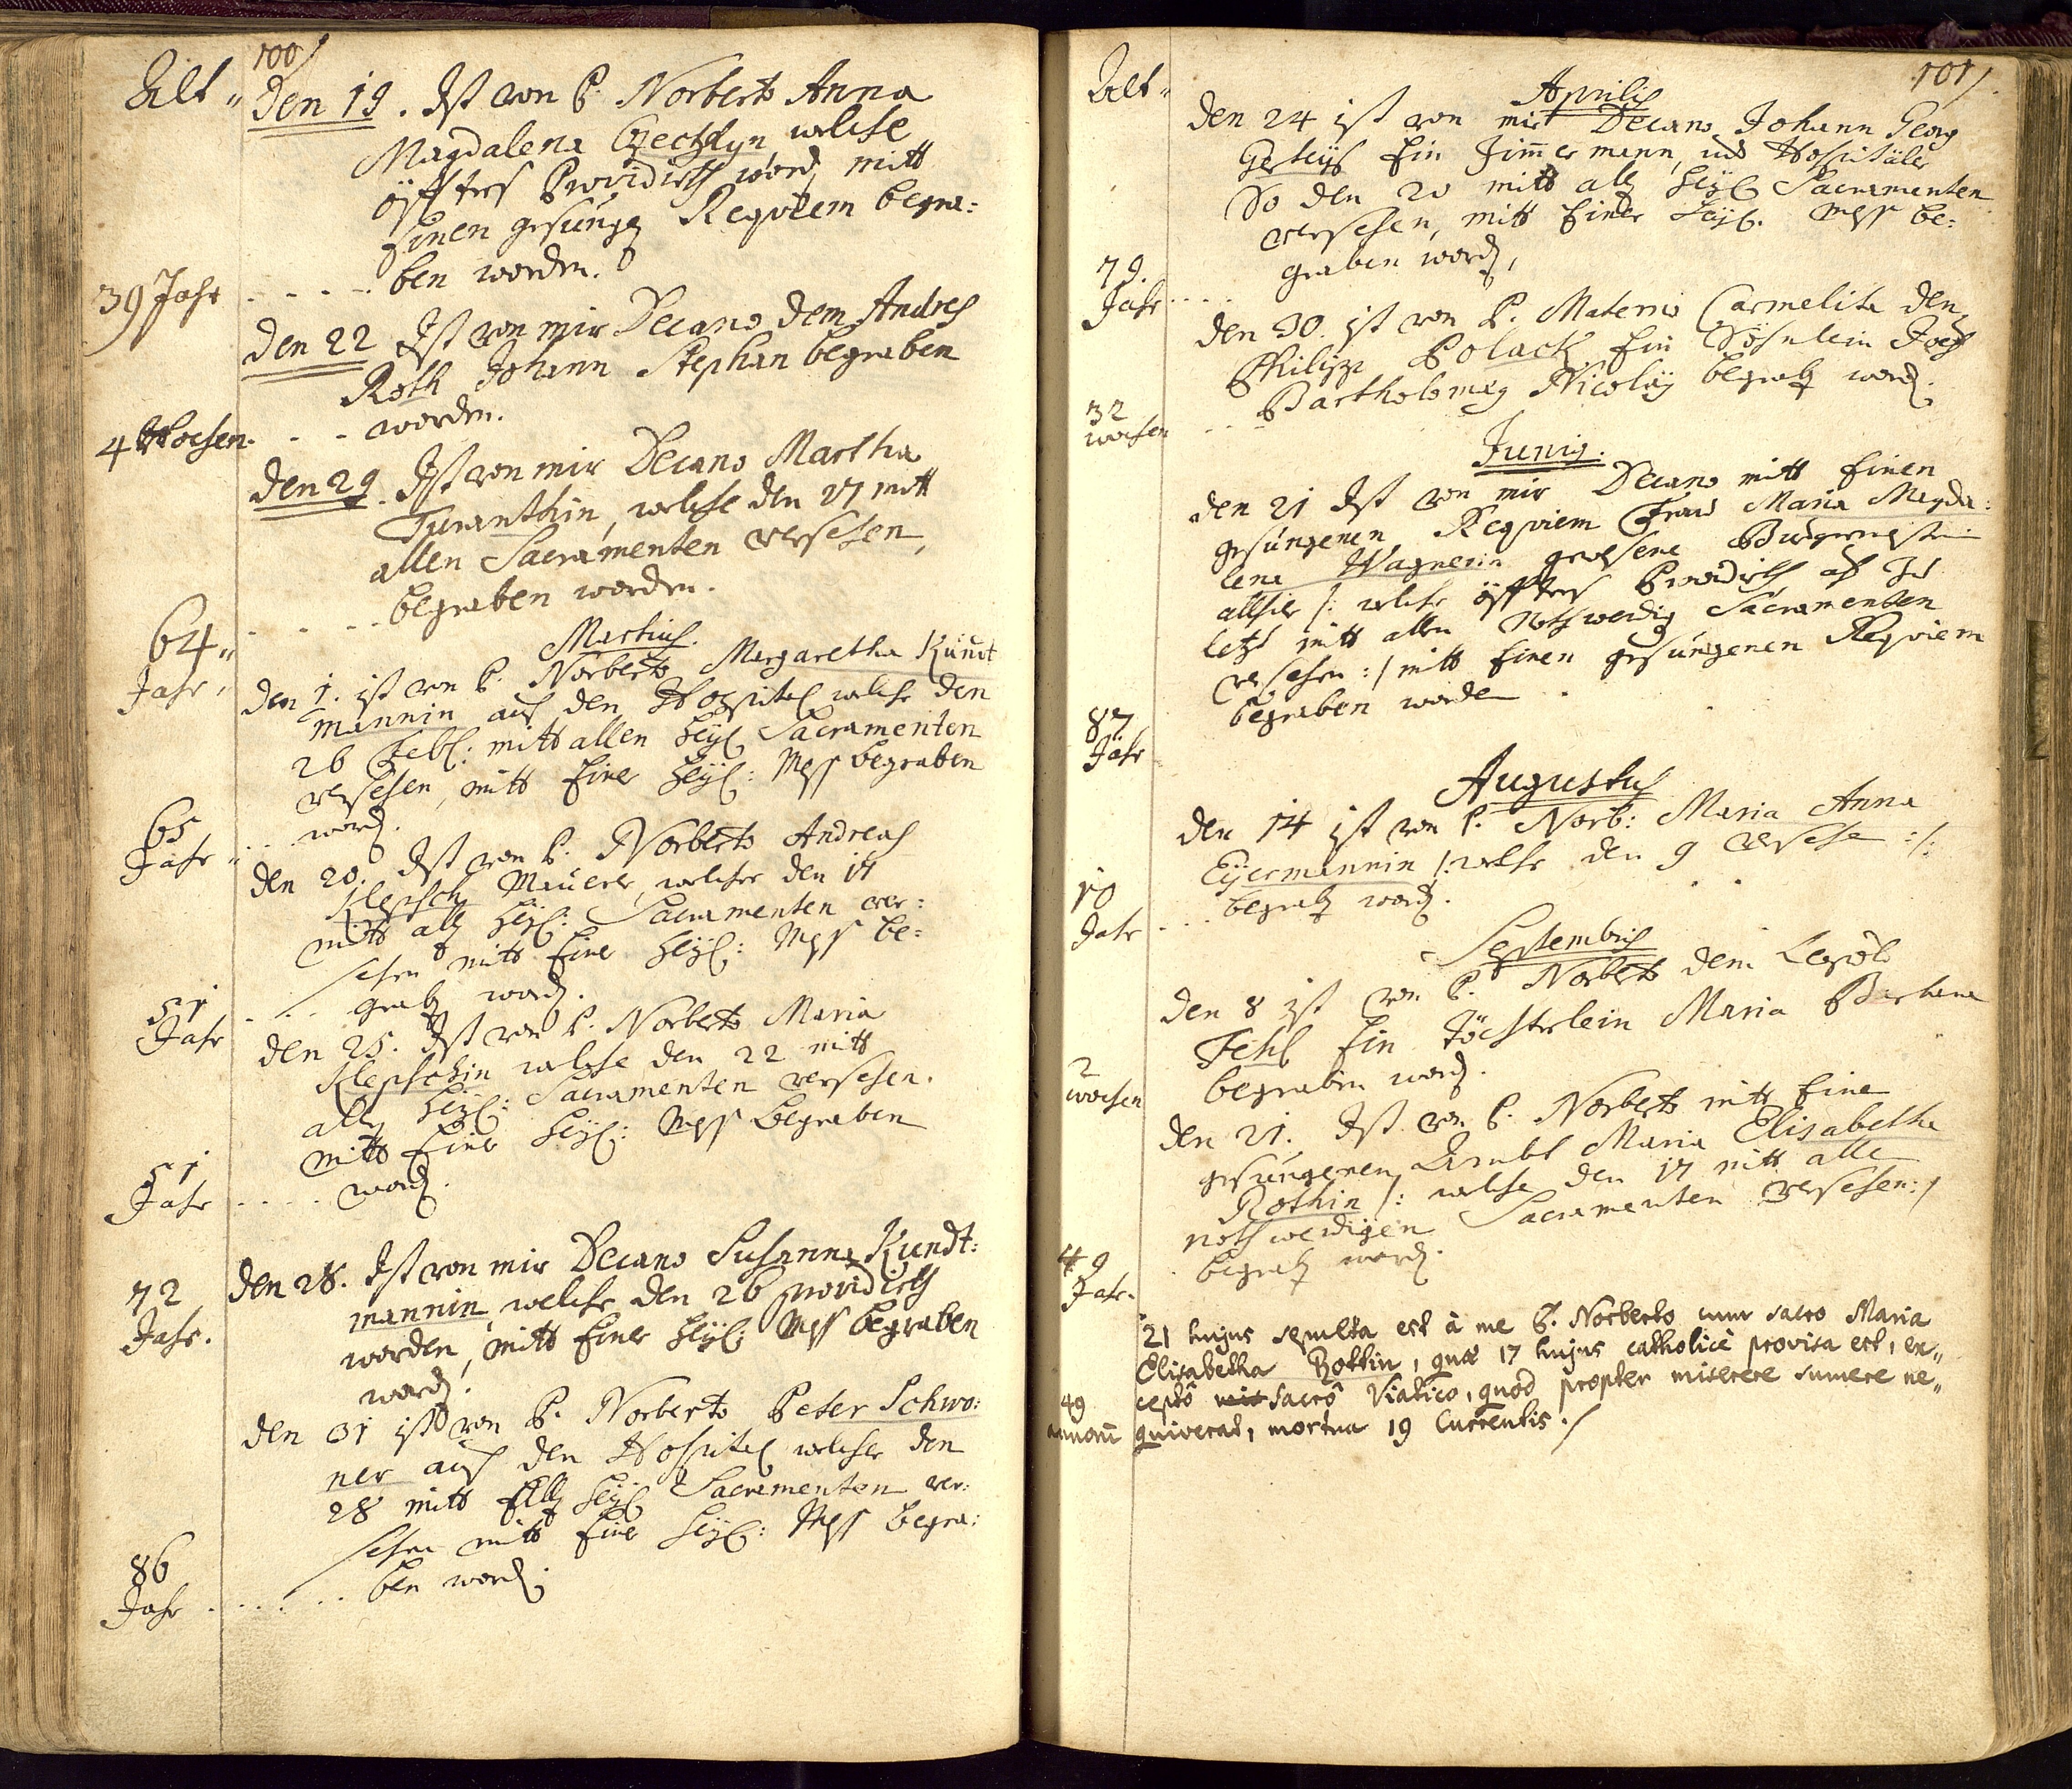 100/
Alt„ den 19. Ist von P. Norberto Anna
Magdalena Czechtlyn, welche
öffters Providirth word, mitt
Einen gesungen Requiem begra:
39 Jahr - - - - ben worden.
den 22 Ist von mir Decano dem Andres
Roth Johann Stephan begraben
4 Wochen. - - worden.
den 29. Ist von mir Decano Martha
Turanthin, welche den 27 mitt
allen Sacramenten versehen,
64„ Jahr, - - - - begraben worden.
Martius.
den 1. ist von P. Norberto Margaretha Kundt
mannin aus den Hospital welche den
26 Febl: mitt allen heyl Sacramenten
versehen, mitt Einer heyl: Mess begraben
65 Jahr „ . . word.
den 20. Ist von P. Norberto Andreas
Klepsch Maurer, welcher den 17
mitt alln heyl: Sacramenten ver:
sehen mitt Einer heyl: Mess be:
51 Jahr - . . . graben word.
den 25. Ist von P. Norberto Maria
Klepschin welche den 22 mitt
alln heyl: Sacramenten versehen.
mitt Einer heyl: Mess begraben
51 Jahr . . . . word.
den 28. Ist von mir Decano Susanna Kundt:
72 Jahr. mannin, welche den 26 providirth
worden, mitt Einer heyl: Mess begraben
word.
den 31 ist von P. Norberto Peter Schwo:
ner aus den Hospital welcher den
28 mitt alln heyl Sacramenten ver:
sehen mitt Einer heyl: Mess begra:
86 Jahr . . . . . ben word.
101/.
Alt„ Aprilis
den 24 ist von mir Decano Johann Georg
Ein Zimmermann, und Hospitäler
So den 20 mitt alln heyl Sacramenten
versehen, mitt Einer heyl. Mess be:
79. Jahr . . . . graben word,
den 30. ist von P. Materno Carmelita den
Philipp Polack Ein Söhnlein Joh
32 wochen . . . Bartholomey Nicolay begraben word.
Junij.
den 21 Ist von mir Decano mitt Einen
gesungenen Requiem Frau Maria Magda:
lena Wagnerin gewesene Burgermeisterin
allhier /: welche öffters Providirth als zu
letzt mitt allen Nothwendig Sacramenten
versehen :/ mitt Einen gesungenen Requiem
87 Jahr begraben worden .
Augustus
den 14 ist von P. Norb: Maria Anna
Eyermannin /: welche den 9 versehe :/:
10 Jahr . . . begraben word.
Septembris
den 8 ist von P. Norberto dem Leopold
Fehl Ein Töchterlein Maria Barbara
2 wochen begraben word.
den 21. Ist von P. Norberto mitt Eine
gesungenen Ambt Maria Elisabetha
Rothin /: welche den 17 mitt alle
nothwendigen Sacramenten versehen: /
49 Jahr. . begraben word.
21 hujus sepulta est à me P. Norberto cum sacro Maria
Elisabetha Rottin, quæ 17 hujus catholicè provisa est, ex„
49 ceptô sacrô Viatico, quod propter miserere sumere ne„
annorũ quiverat, mortua 19 Currentis ./